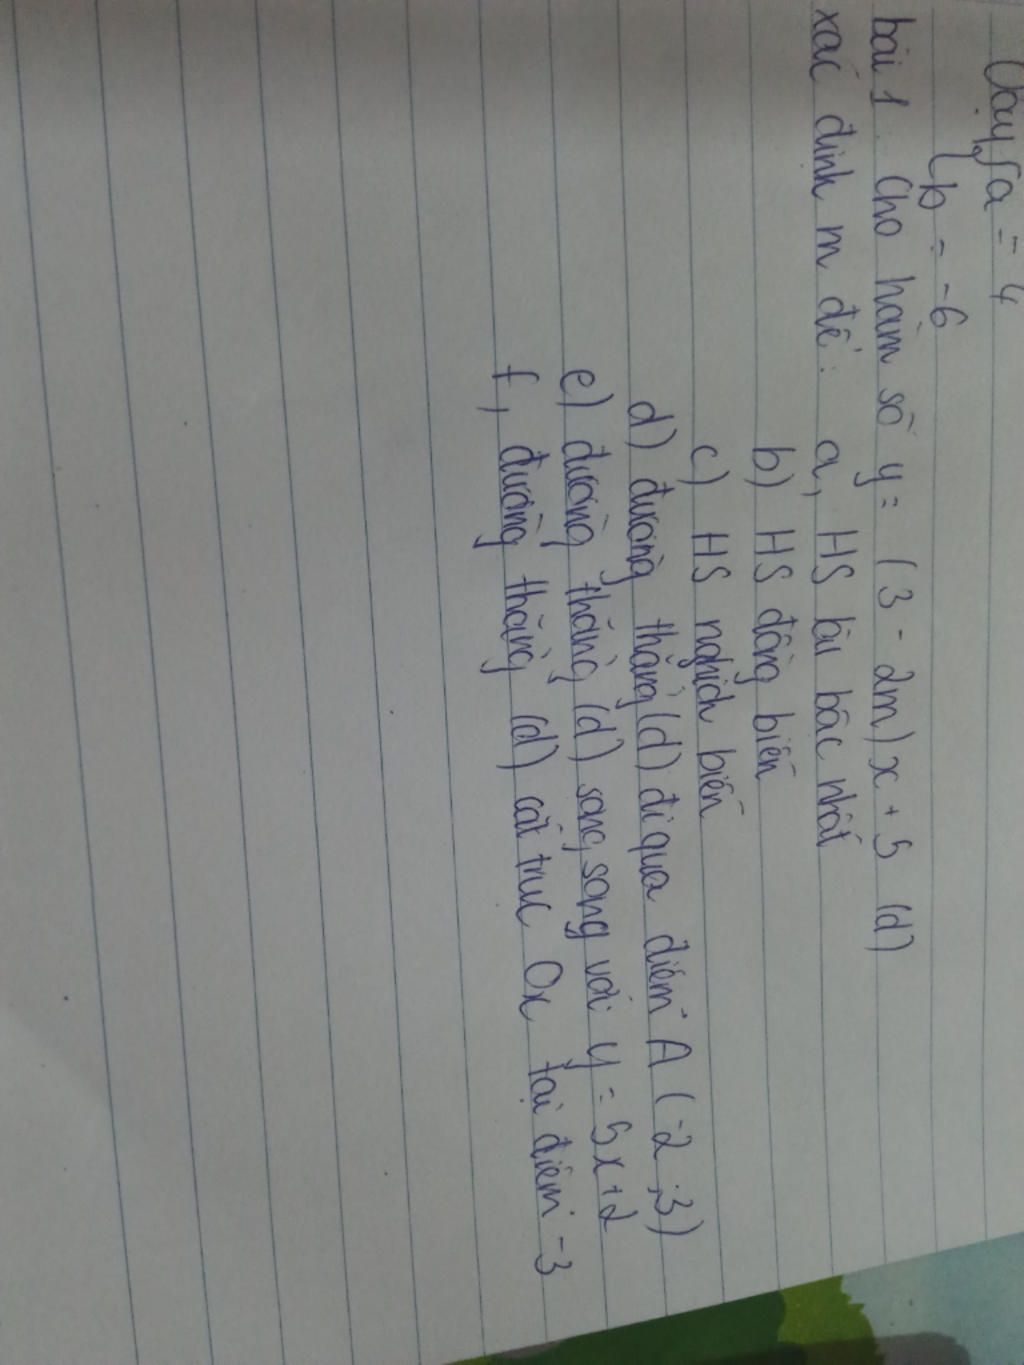 Vậy { a = 4
b = -6
bài 1. Cho hàm số y = (3 - 2m)x + 5 (d)
xác định m để: a, HS là bậc nhất
b) HS đồng biến
c) HS nghịch biến
d) đường thẳng (d) đi qua điểm A (-2; 3)
e) đường thẳng (d) song song với y = 5x+2
f, đường thẳng (d) cắt trục Ox tại điểm -3